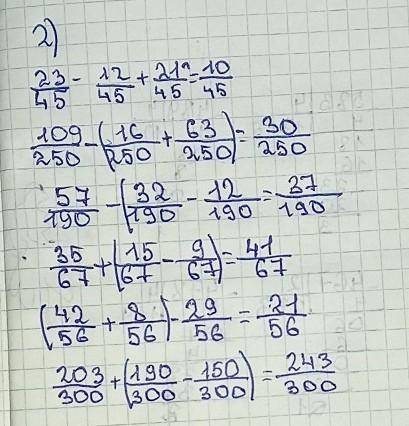 2)
23/45 - 12/45 + 21/45 = 10/45
109/250 - (16/250 + 63/250) = 30/250
57/190 - (32/190 - 12/190 = 37/190
35/67 + (15/67 - 9/67) = 41/67
(42/56 + 8/56) - 29/56 = 21/56
203/300 + (190/300 - 150/300) = 243/300